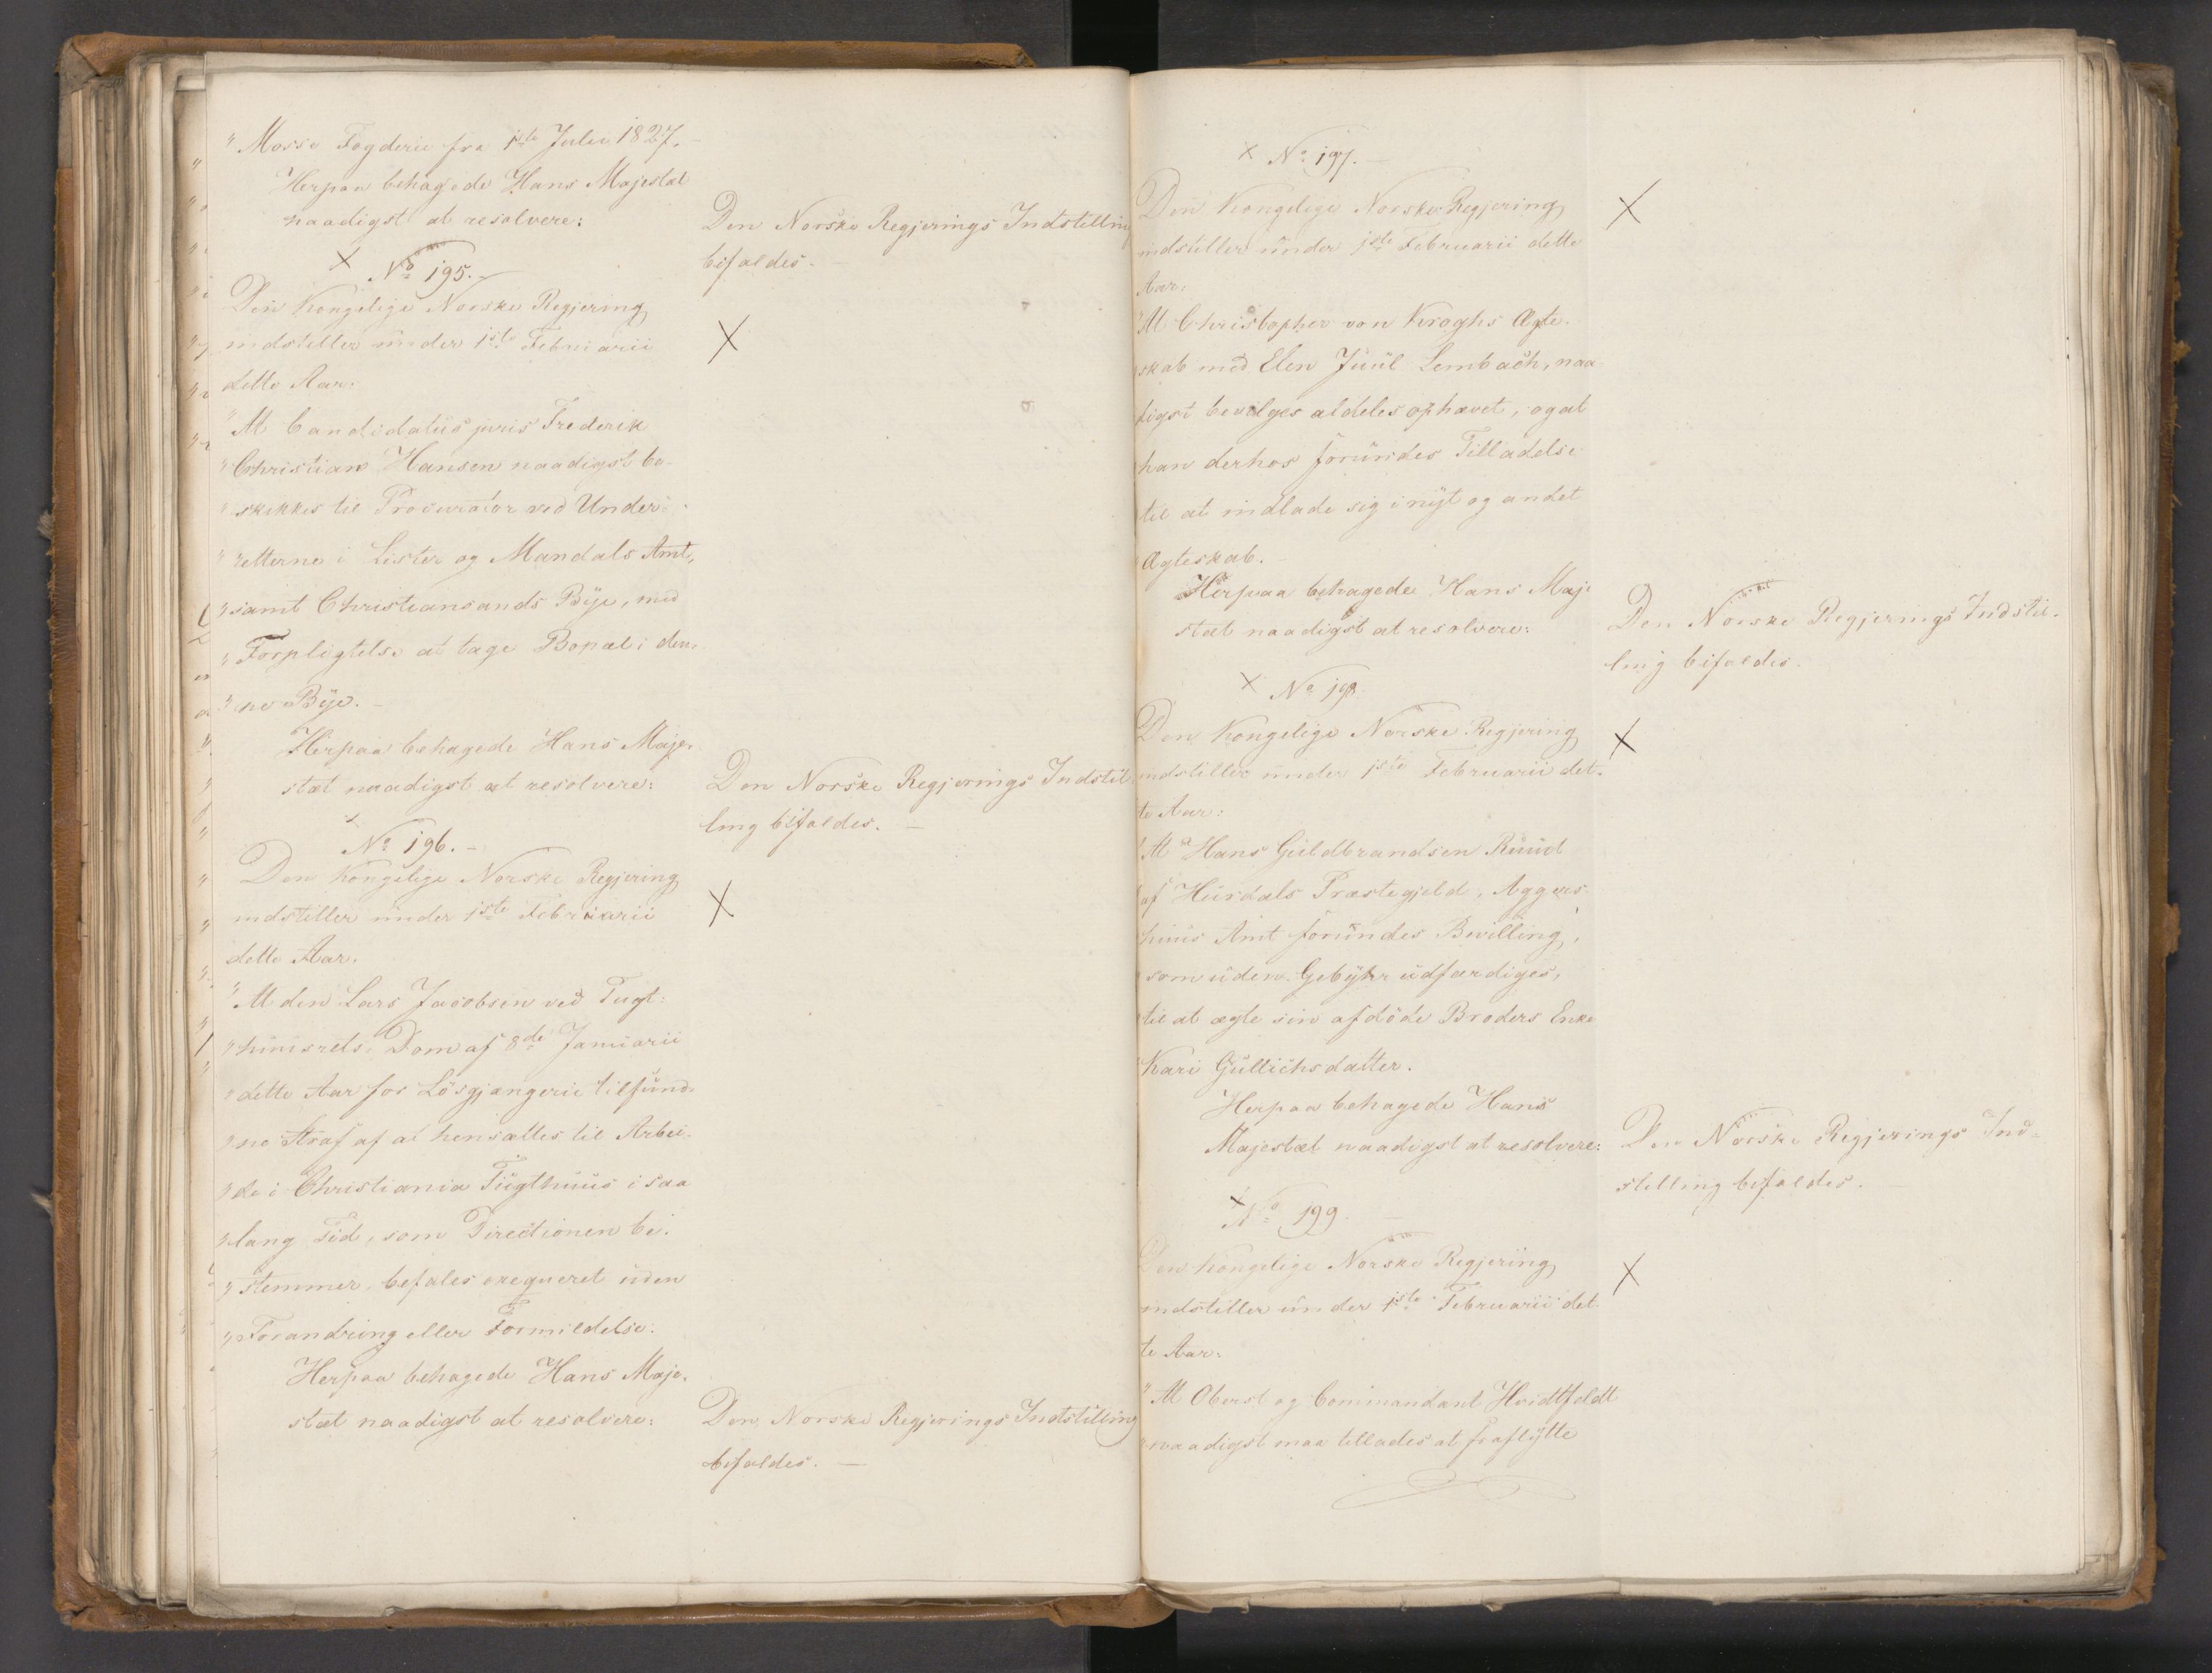 "Mosse Fogderie fra 1ste Julii 1827.
Herpaa behagede Hans Majestæt
naadigst at resolvere:
Den Norske Regjerings Indstilling
bifaldes.
× No 195.
Den Kongelige Norske Regjering
indstiller under 1ste Februarii
dette Aar:
"At Candidatus juris Frederik
"Christian Hansen naadigst be-
"skikkes til Procurator ved Under-
"retterne i Lister og Mandals Amt,
"samt Christiansands Bye, med
"Forpligtelse at tage Bopæl i den-
"ne Bye. -
Herpaa behagede Hans Maje-
stæt naadigst at resolvere:
Den Norske Regjerings Indstil-
ling bifaldes. -
× No 196. -
Den Kongelige Norske Regjering
indstiller under 1ste Februarii
dette Aar.
"At den Lars Jacobsen ved Tugt-
"huusrets-Dom af 8de Januarii
"dette Aar for Løsgjængerie tilfund-
"ne Straf af at hensættes til Arbei-
"de i Christiania Tugthuus i saa
"lang Tid, som Directionen be-
"stemmer, befales exequeret uden
"Forandring eller Formildelse.
Herpaa behagede Hans Maje-
stæt naadigst at resolvere:
Den Norske Regjerings Indstilling
bifaldes. -
× No 197. -
Den Kongelige Norske Regjering
indstiller under 1ste Februarii dette
Aar:
"At Christopher von Kroghs Ægte-
"skab med Elen Juul Lembach, naa-
digst bevilges aldeles ophævet, og at
han derhos forundes Tilladelse
til at indlade sig i nyt og andet
"Ægteskab. -
Herpaa behagede Hans Maje-
stæt naadigst at resolvere:
Den Norske Regjerings Indstil-
ling bifaldes.
× No 198
Den Kongelige Norske Regjering
indstiller under 1ste Februarii det-
te Aar:
"At Hans Guldbrandsen Ruud
"af Hurdals Præstegjeld, Aggers-
huus Amt forundes Bevilling,
"som uden Gebyhr udfærdiges,
"til at ægte sin afdöde Broders Enke
"Kari Gullichsdatter.
Herpaa behagede Hans
Majestæt naadigst at resolvere:
Den Norske Regjerings Ind-
stilling bifaldes. -
× No 199. -
Den Kongelige Norske Regjering
indstiller under 1ste Februarii det-
te Aar:
"At Oberst og Commandant Hvidtfeldt
"naadigst maa tillades at fraflytte